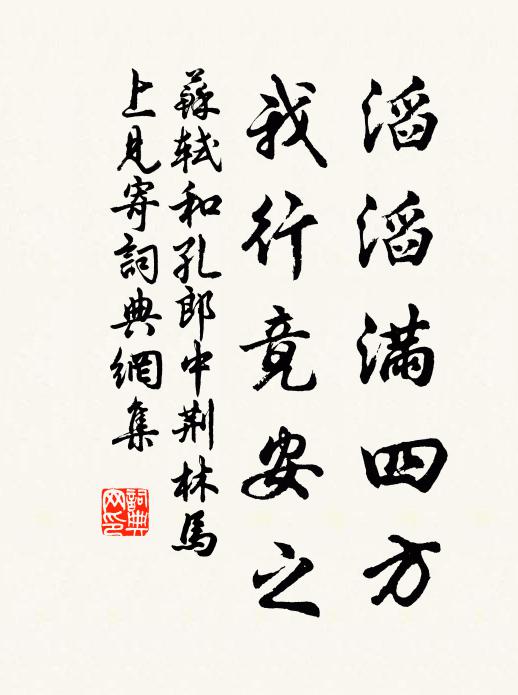 滔滔滿四方
我行竟安之
蘇軾和孔郎中荆林馬
上見寄詞典網集
詞典
网印